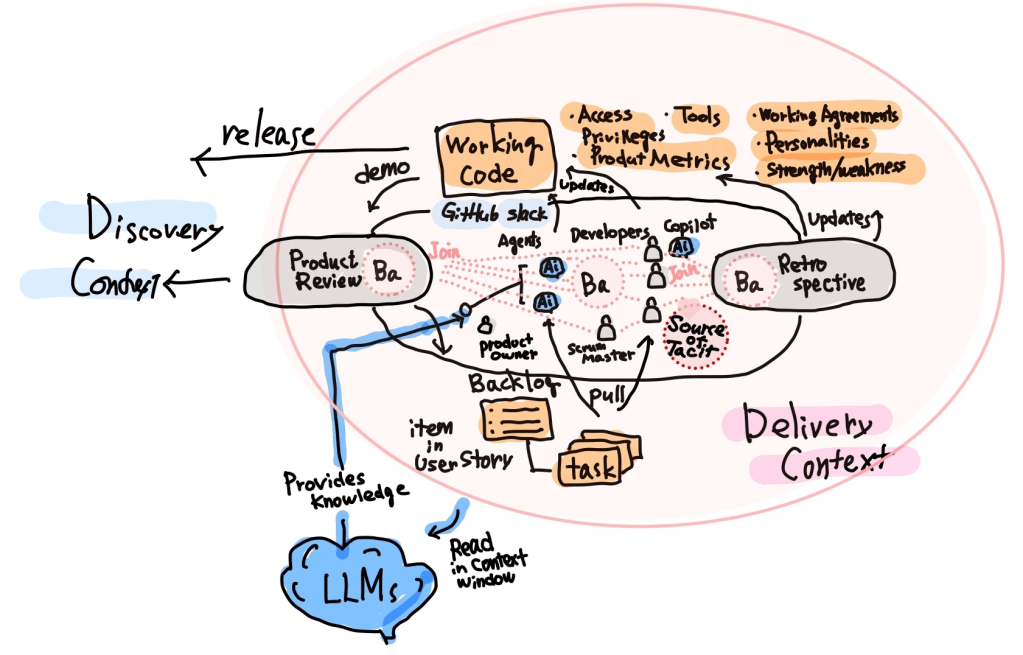 release
Working
Code
demo
GitHub slack
updates
・Access
Privileges
・Tools
・Produt Metrics
・Working Agreements
・Personalities
・Strength/weakness
updates
Discovery
Context
Product
Review
Ba
Join
Agents
Ai
Ai
Developers
Copilot
Ai
Ba
Join
Ba
Retro
spective
product
owner
Scrum
Master
Source
of
Tacit
Backlog
pull
item
in
User Story
task
Delivery
Context
Provides
Knowledge
LLMs
Read
in context
window